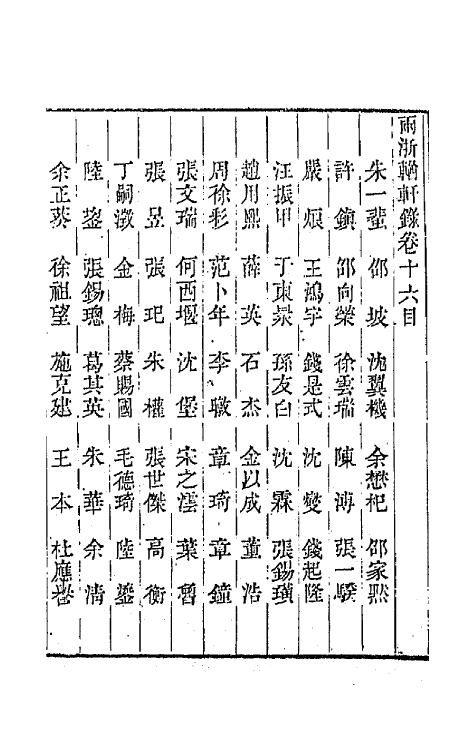 兩浙輶軒錄卷十六目
朱一蜚 邵坡 沈翼機 余懋杞 邵家默
許鎮 邵向榮 徐雲瑞 陳溥 張一驥
嚴 王鴻宇 錢是式 沈燮 錢起隆
汪振甲 于東昶 孫友白 沈霖 張錫璜
趙用熙 薛英 石杰 金以成 董浩
周徐彩 范卜年 李職 章琦 章鐘
張文瑞 何西堰 沈堡 宋之 葉
張昱 張玘 朱權 張世傑 高衡
丁嗣澂 金梅 蔡賜國 毛德琦 陸鎣
陸鋆 張錫璁 葛其英 朱華 余清
余正葵 徐祖望 施克建 王本 杜應譽